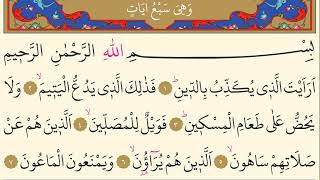 وَهِيَ سَبْعُ اٰيَاتٍ
بِسْمِ اللّٰهِ الرَّحْمٰنِ الرَّحٖيمِ
اَرَاَيْتَ الَّذٖي يُكَذِّبُ بِالدّٖينِۜ ﴿١﴾ فَذٰلِكَ الَّذٖي يَدُعُّ الْيَتٖيمَۙ ﴿٢﴾ وَلَا
يَحُضُّ عَلٰى طَعَامِ الْمِسْكٖينِۜ ﴿٣﴾ فَوَيْلٌ لِلْمُصَلّٖينَۙ ﴿٤﴾ اَلَّذٖينَ هُمْ عَنْ
صَلَاتِهِمْ سَاهُونَۙ ﴿٥﴾ اَلَّذٖينَ هُمْ يُرَٓاؤُ۫نَۙ ﴿٦﴾ وَيَمْنَعُونَ الْمَاعُونَ ﴿٧﴾